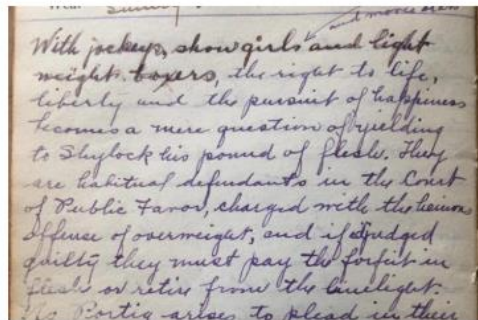 Sunday
and movie stars
With jockeys, show girls and light
weight boxers, the right to life,
liberty and the pursuit of happiness
becomes a mere question of yielding
to Shylock his pound of flesh. They
are habitual defendants in the Court
of Public Favor, charged with the heinous
offense of overweight, and if judged
guilty they must pay the forfeit in
flesh or retire from the limelight.
No Portia arises to plead in their